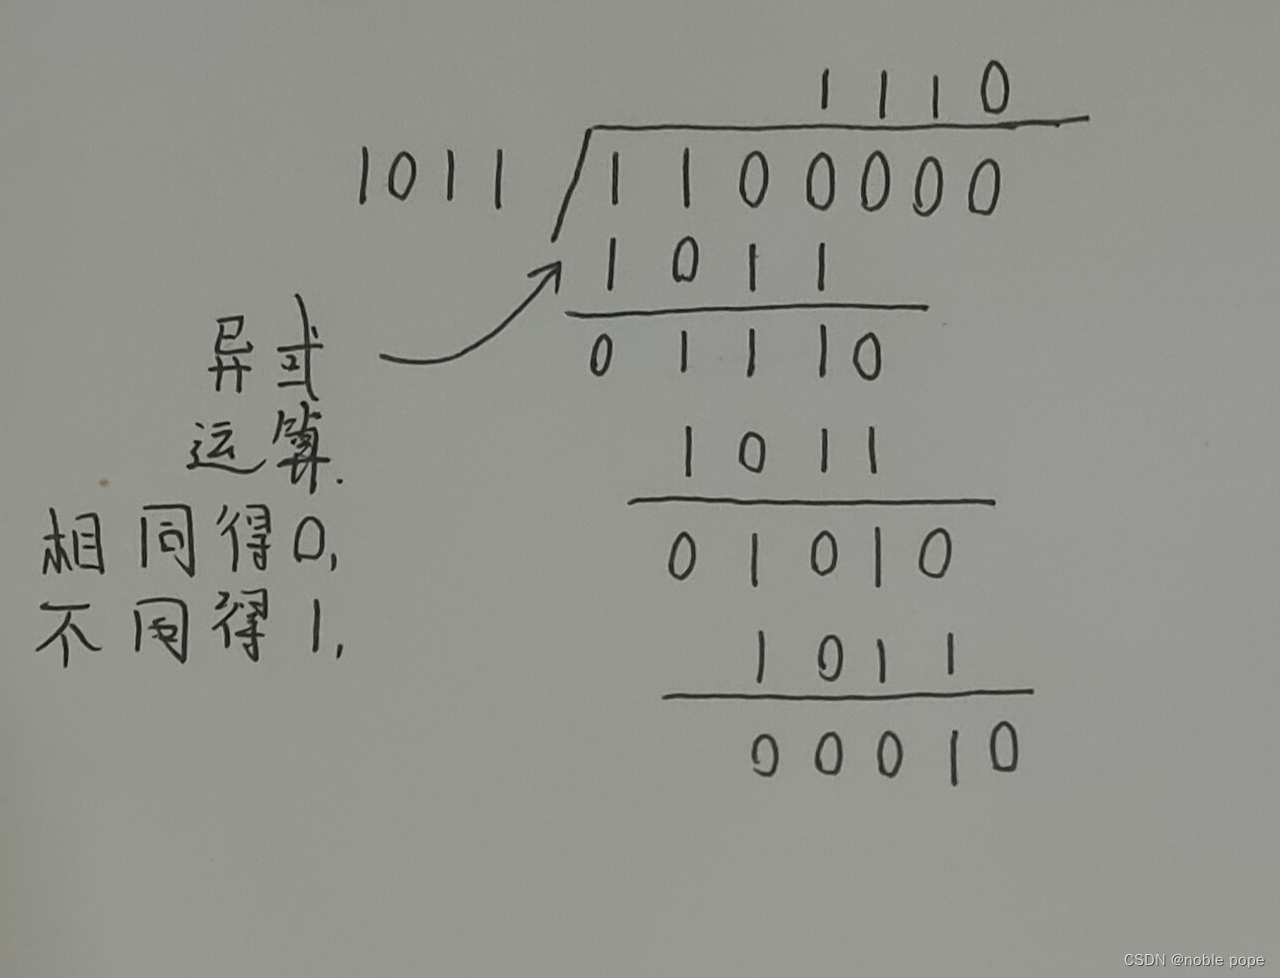 1110
1011 1100000
1011
01110
异或
运算.
1011
相同得0,
01010
不同得1,
1011
00010
CSDN @noble pope